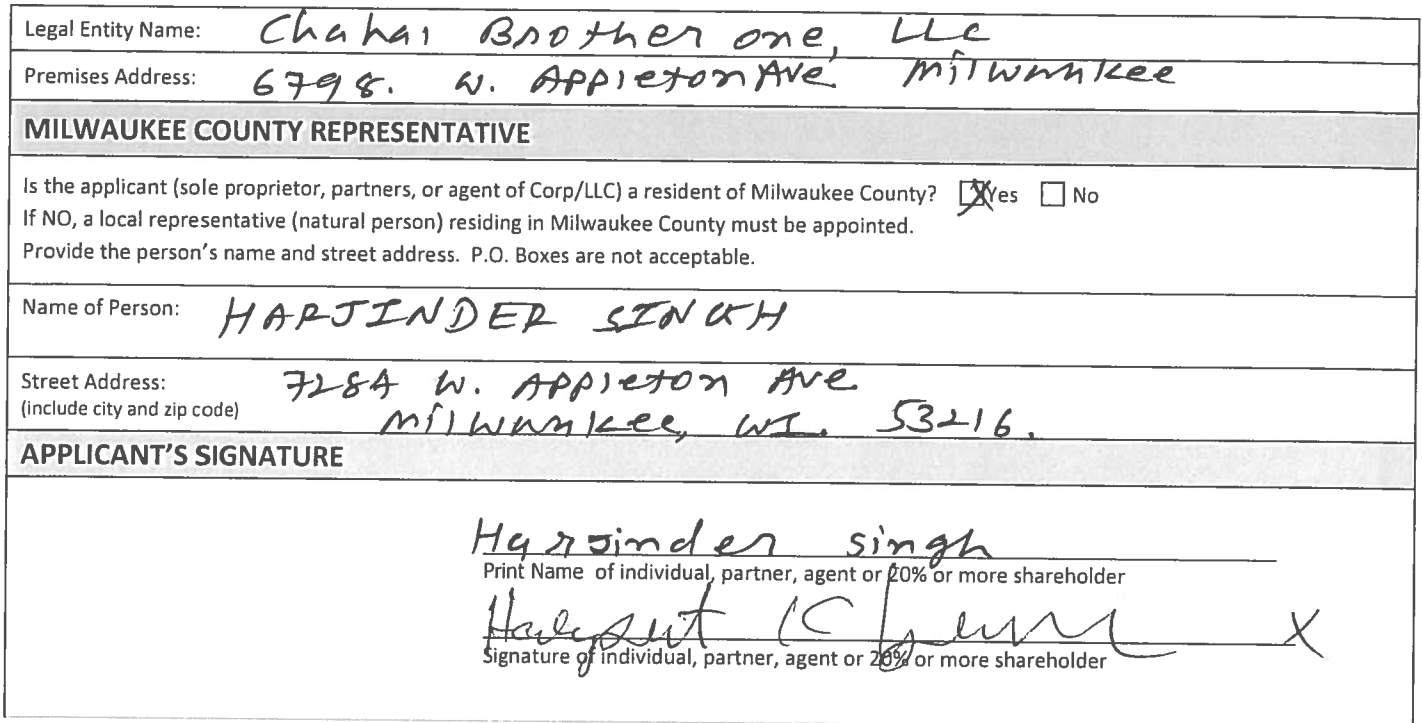 Legal Entity Name: Chahal Brother one, LLC
Premises Address: 6798. W. Appleton Ave Milwaukee
MILWAUKEE COUNTY REPRESENTATIVE
Is the applicant (sole proprietor, partners, or agent of Corp/LLC) a resident of Milwaukee County? ☒ Yes ☐ No
If NO, a local representative (natural person) residing in Milwaukee County must be appointed.
Provide the person's name and street address. P.O. Boxes are not acceptable.
Name of Person: HARJINDER SINGH
Street Address: 7284 W. Appleton Ave
(include city and zip code) Milwaukee, WI. 53216.
APPLICANT'S SIGNATURE
Harjinder singh
Print Name of individual, partner, agent or 20% or more shareholder
X
Signature of individual, partner, agent or 20% or more shareholder